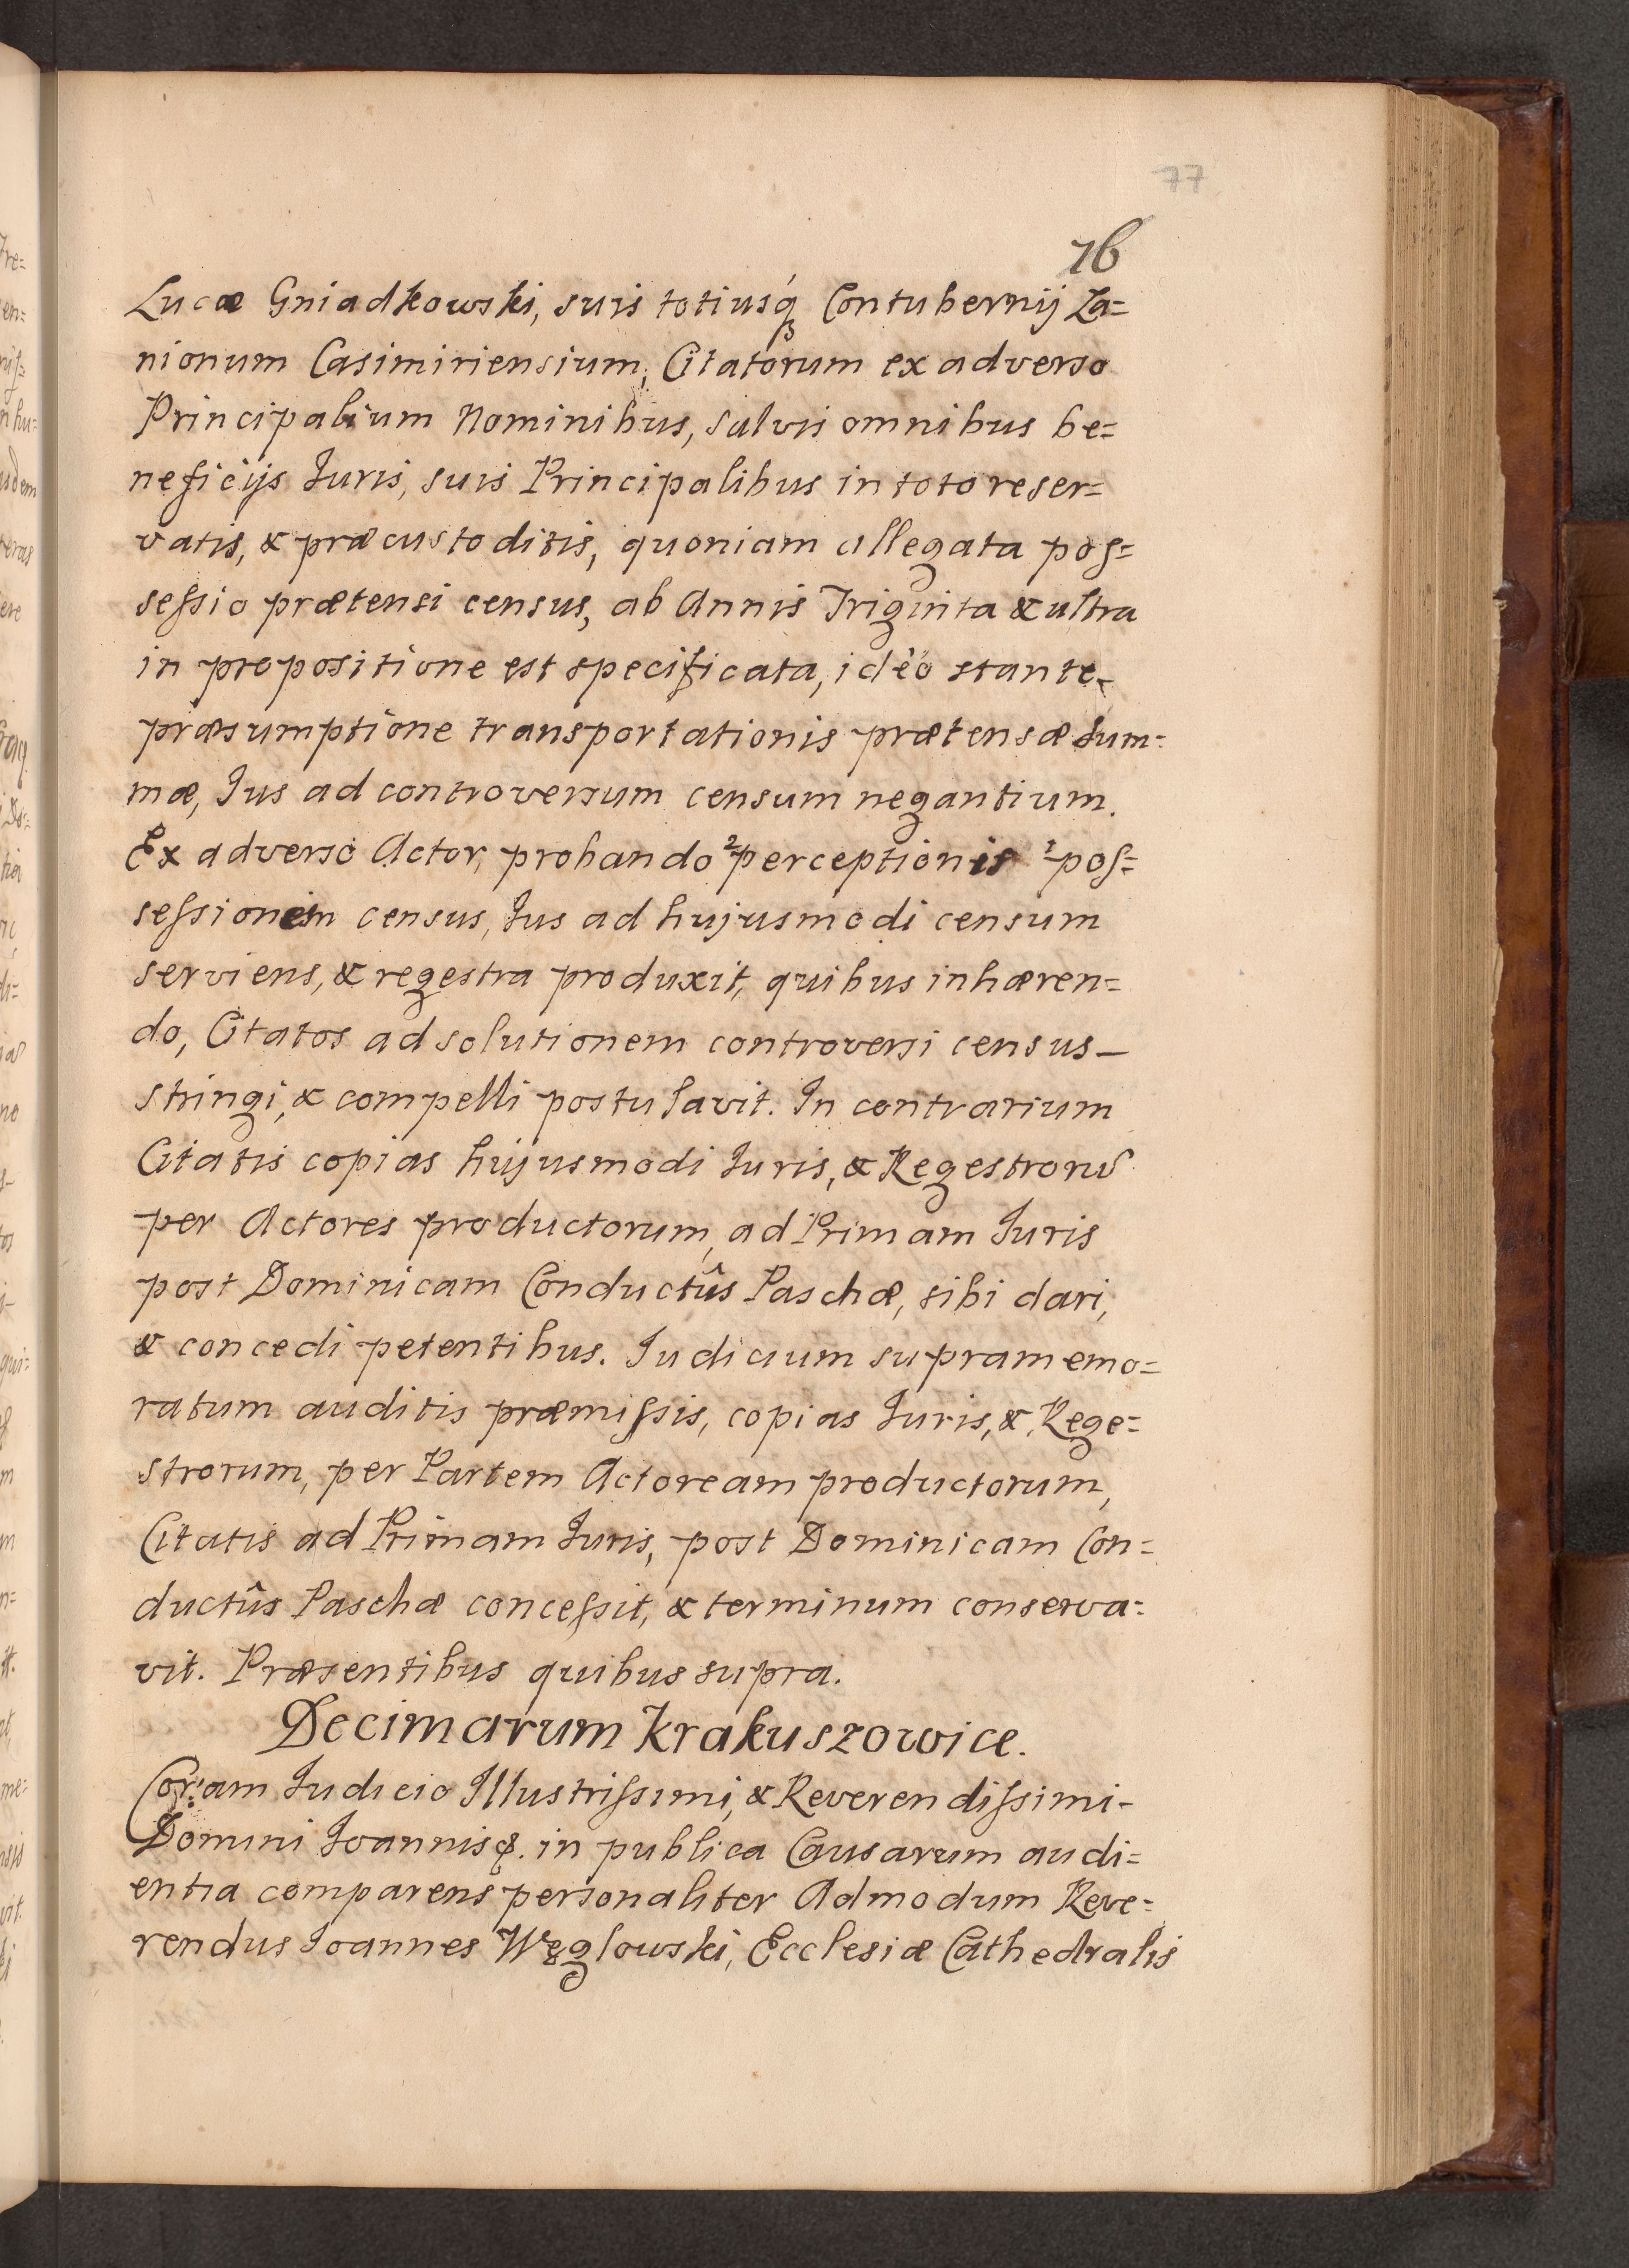 77
76
Lucæ Gniadkowski, suis totiusq́ꝫ Contubernij La=
nionum Casimiriensium, Citatorum ex adverso
Principalium Nominibus, salvis omnibus be=
neficijs Iuris, suis Principalibus in toto reser=
vatis, & præcustoditis, quoniam allegata pos=
sessio prætensi census, ab Annis Triginta & ultra
in propositione est specificata, idèo stante
præsumptione transportationis prætensæ sum=
mæ, Ius ad controversum censum negantium.
Ex adverso Actor, probando ²perceptionis ¹pos=
sessionem census, Ius ad hujusmodi censum
serviens, & regestra produxit, quibus inhæren=
do, Citatos ad solutionem controversi census
stringi, & compelli postulavit. In contrarium
Citatis copias hujusmodi Iuris, & Regestrorũ
per Actores productorum, ad Primam Iuris
post Dominicam Conductûs Paschæ, sibi dari,
& concedi petentibus. Iudicium supramemo=
ratum auditis præmissis, copias Iuris, & Rege=
strorum, per Partem Actoream productorum,
Citatis ad Primam Iuris, post Dominicam Con=
ductûs Paschæ concessit, & terminum conserva=
vit. Præsentibus quibus supra.
Decimarum Krakuszowice.
Coram Iudicio Illustrissimi, & Reverendissimi
Domini Ioannis &. in publica Causarum audi=
entia comparens personaliter Admodum Reve=
rendus Ioannes Węglowski, Ecclesiæ Cathedralis